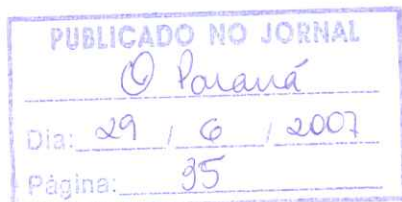 PUBLICADO NO JORNAL
O Paraná
Dia: 29 / 6 / 2007
Página: 35